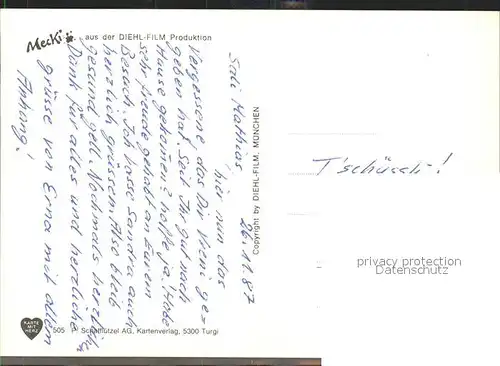 Mecki
aus der DIEHL-FILM Produktion
26.11.87
Sali Matthias
hier nun das
Vergessene das Dir Vreni ge=
geben hat. Seit Ihr gut nach
Hause gekomen? hoffe ja! Habe
sehr freude gehabt an Eurem
Besuch. Ich lasse Sandra auch
herzlich grüssen. Also bleib
gesund gell. Nochmals herzlich
Dank für alles und herzliche
grüsse von Erna mit allem
Anhang!
T'schüsch-!
Copyright by DIEHL-FILM, MÜNCHEN
KARTE MIT HERZ
505
Schatflützel AG, Kartenverlag, 5300 Turgi
privacy protection
akpool.com